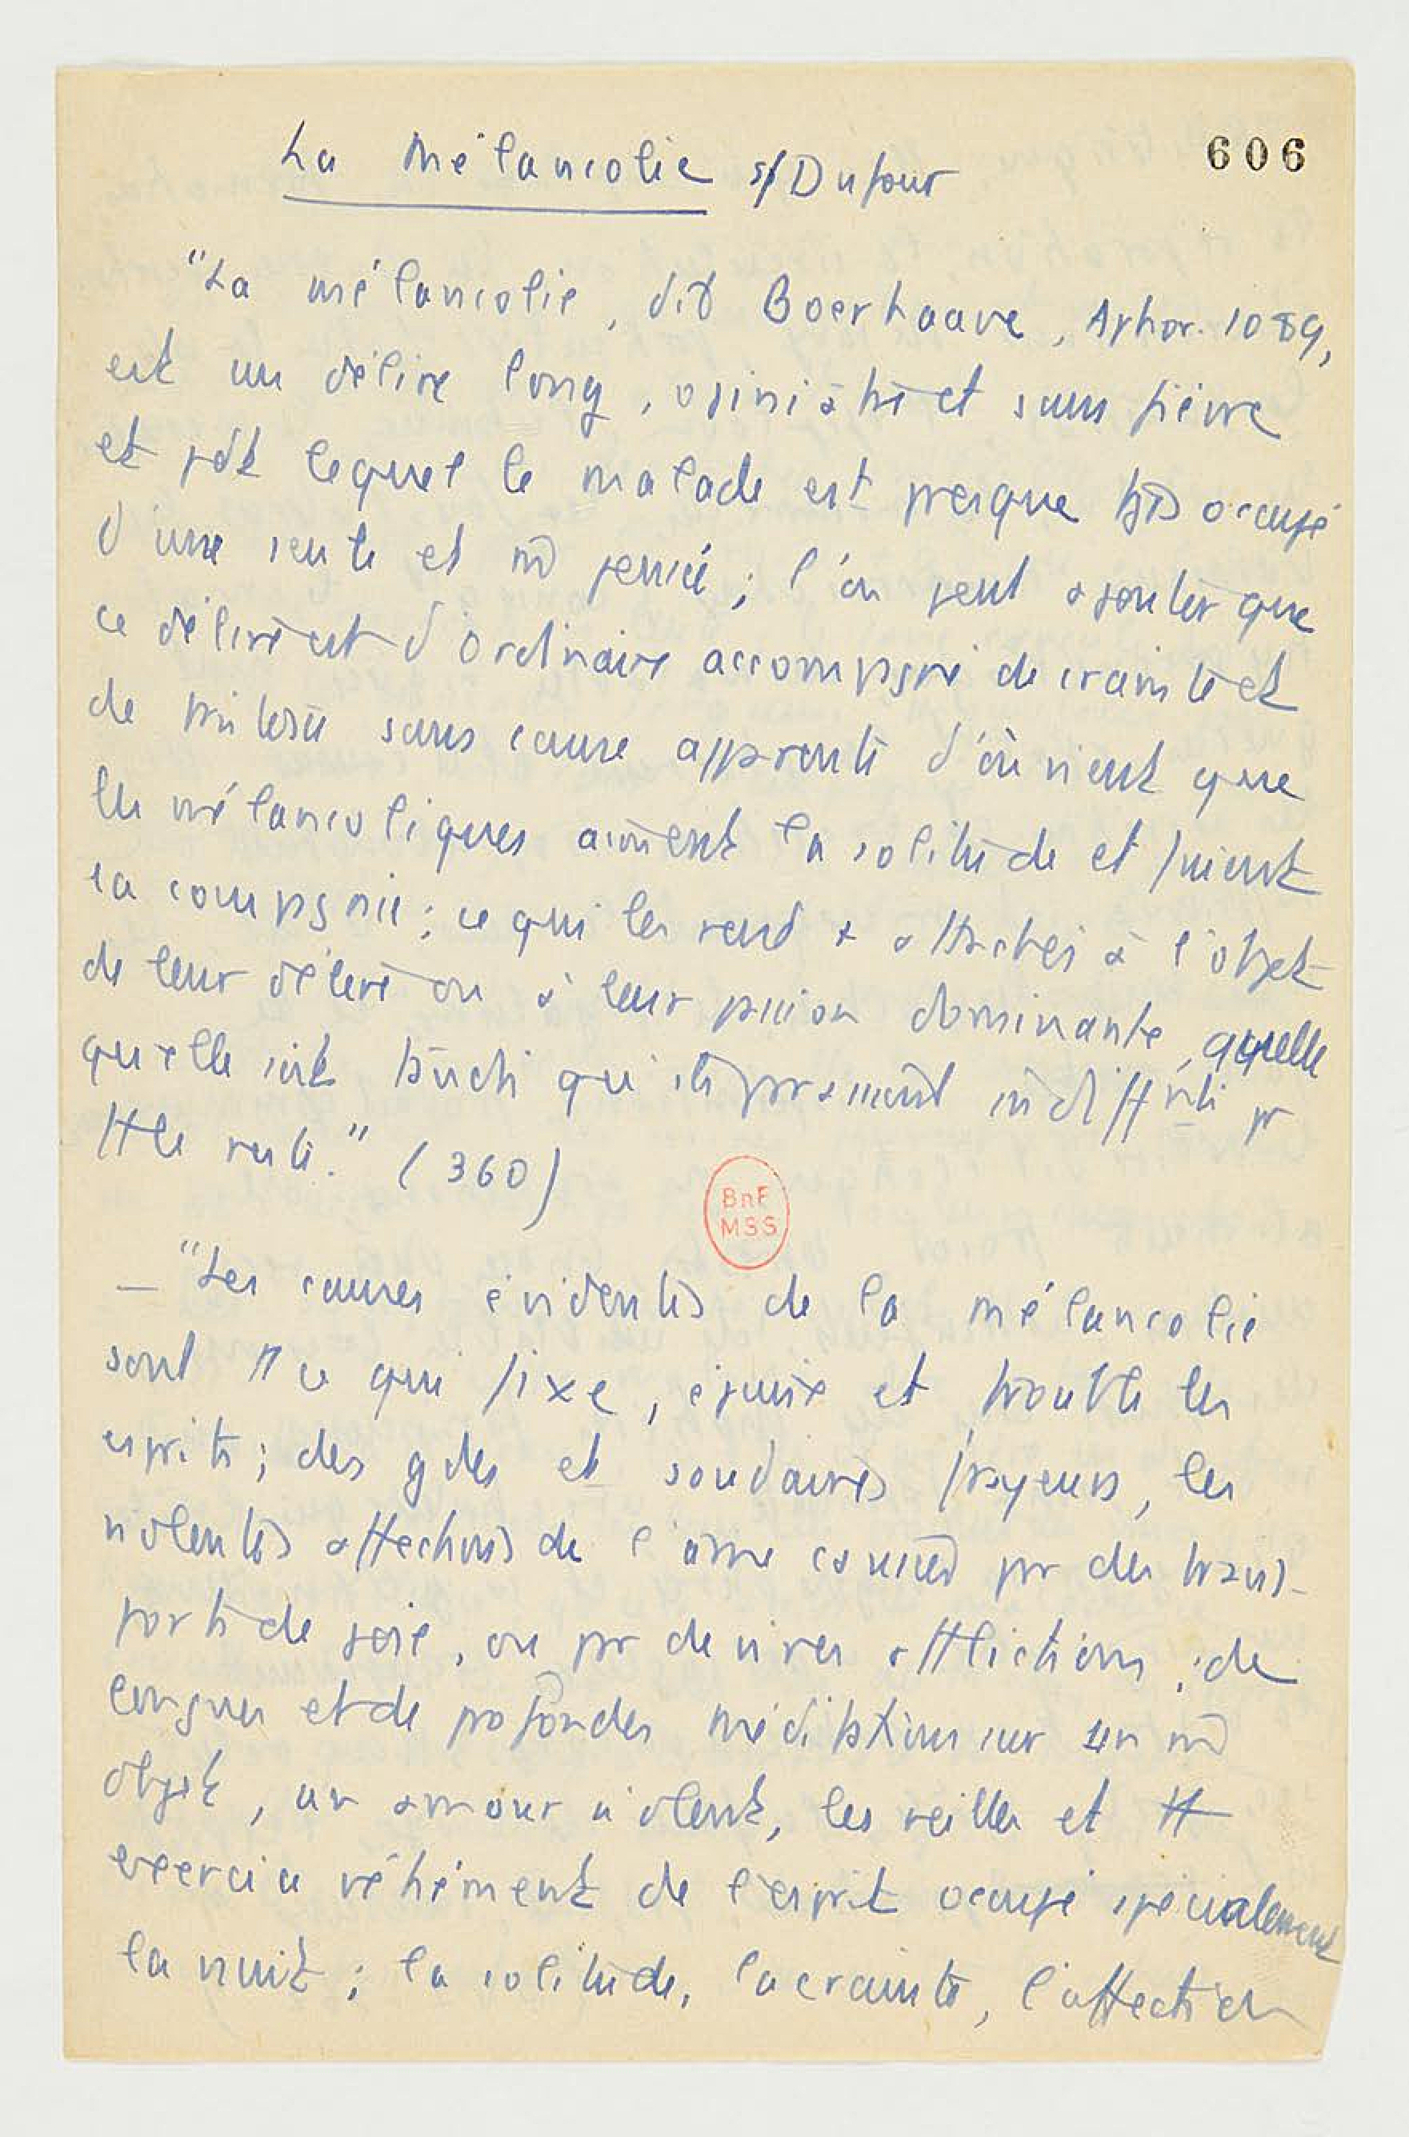 La Mélancolie s/ Dufour
606
"La mélancolie, dit Boerhaave, Aphor. 1089,
est un délire long, opiniâtre et sans fièvre
et pdt lequel le malade est presque tjs occupé
d'une seule et m̄ pensée ; l'on peut ajouter que
ce délire est d'ordinaire accompagné de crainte et
de tristesse sans cause apparente d'où vient que
les mélancoliques aiment la solitude et fuient
la compagnie ; ce qui les rend + attachés à l'objet
de leur délire ou à leur passion dominante, quelle
qu'elle soit tandis qu'ils paraissent indifférents pr
tt le reste." (360)
BnF
MSS
_ "Les causes évidentes de la mélancolie
sont tt ce qui fixe, épuise et trouble les
esprits ; des gdes et soudaines frayeurs, les
violentes affections de l'âme causées par des trans-
ports de joie, ou par de vives afflictions, de
longues et de profondes méditations sur un m̄
objet, un amour violent, les veilles et tt
exercice véhément de l'esprit occupé spécialement
la nuit ; la solitude, la crainte, l'affection